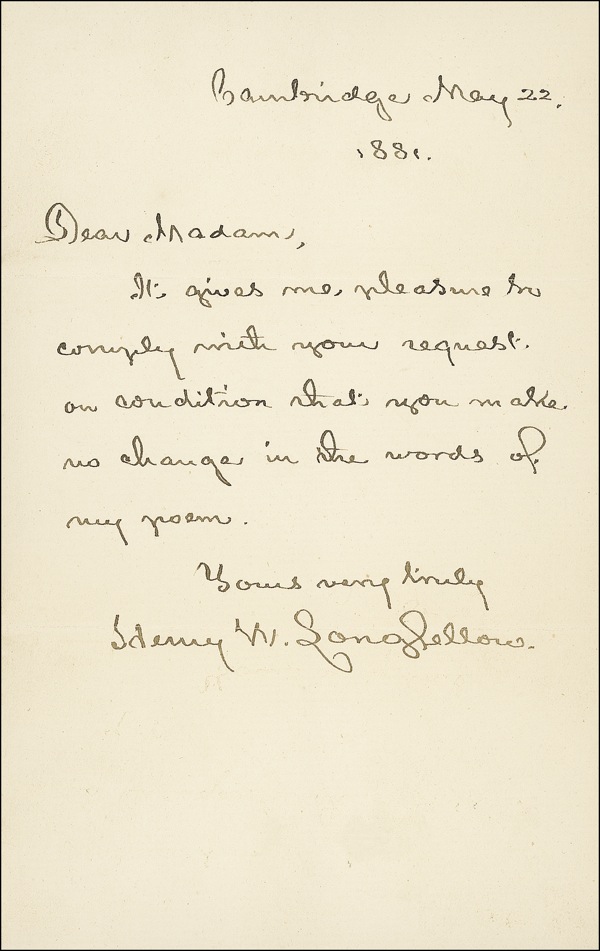 Cambridge May 22.
1881.
Dear Madam,
It gives me pleasure to
comply with your request.
on condition that you make
no change in the words of
my poem.
Yours very truly
Henry W. Longfellow.